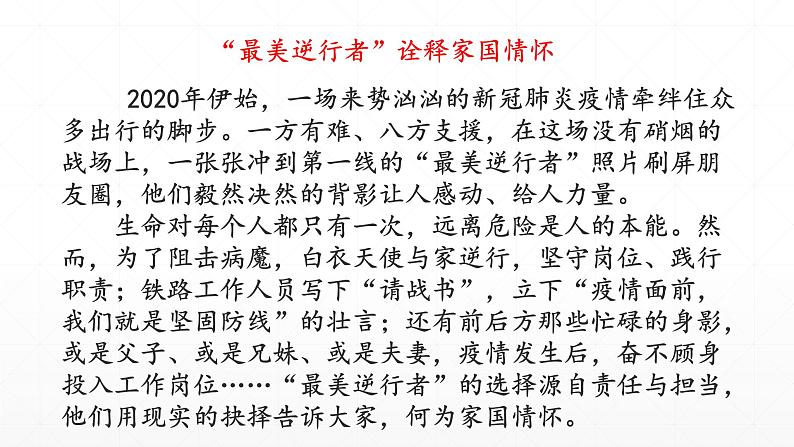 “最美逆行者”诠释家国情怀
2020年伊始，一场来势汹汹的新冠肺炎疫情牵绊住众
多出行的脚步。一方有难、八方支援，在这场没有硝烟的
战场上，一张张冲到第一线的“最美逆行者”照片刷屏朋
友圈，他们毅然决然的背影让人感动、给人力量。
生命对每个人都只有一次，远离危险是人的本能。然
而，为了阻击病魔，白衣天使与家逆行，坚守岗位、践行
职责；铁路工作人员写下“请战书”，立下“疫情面前，
我们就是坚固防线”的壮言；还有前后方那些忙碌的身影，
或是父子、或是兄妹、或是夫妻，疫情发生后，奋不顾身
投入工作岗位……“最美逆行者”的选择源自责任与担当，
他们用现实的抉择告诉大家，何为家国情怀。